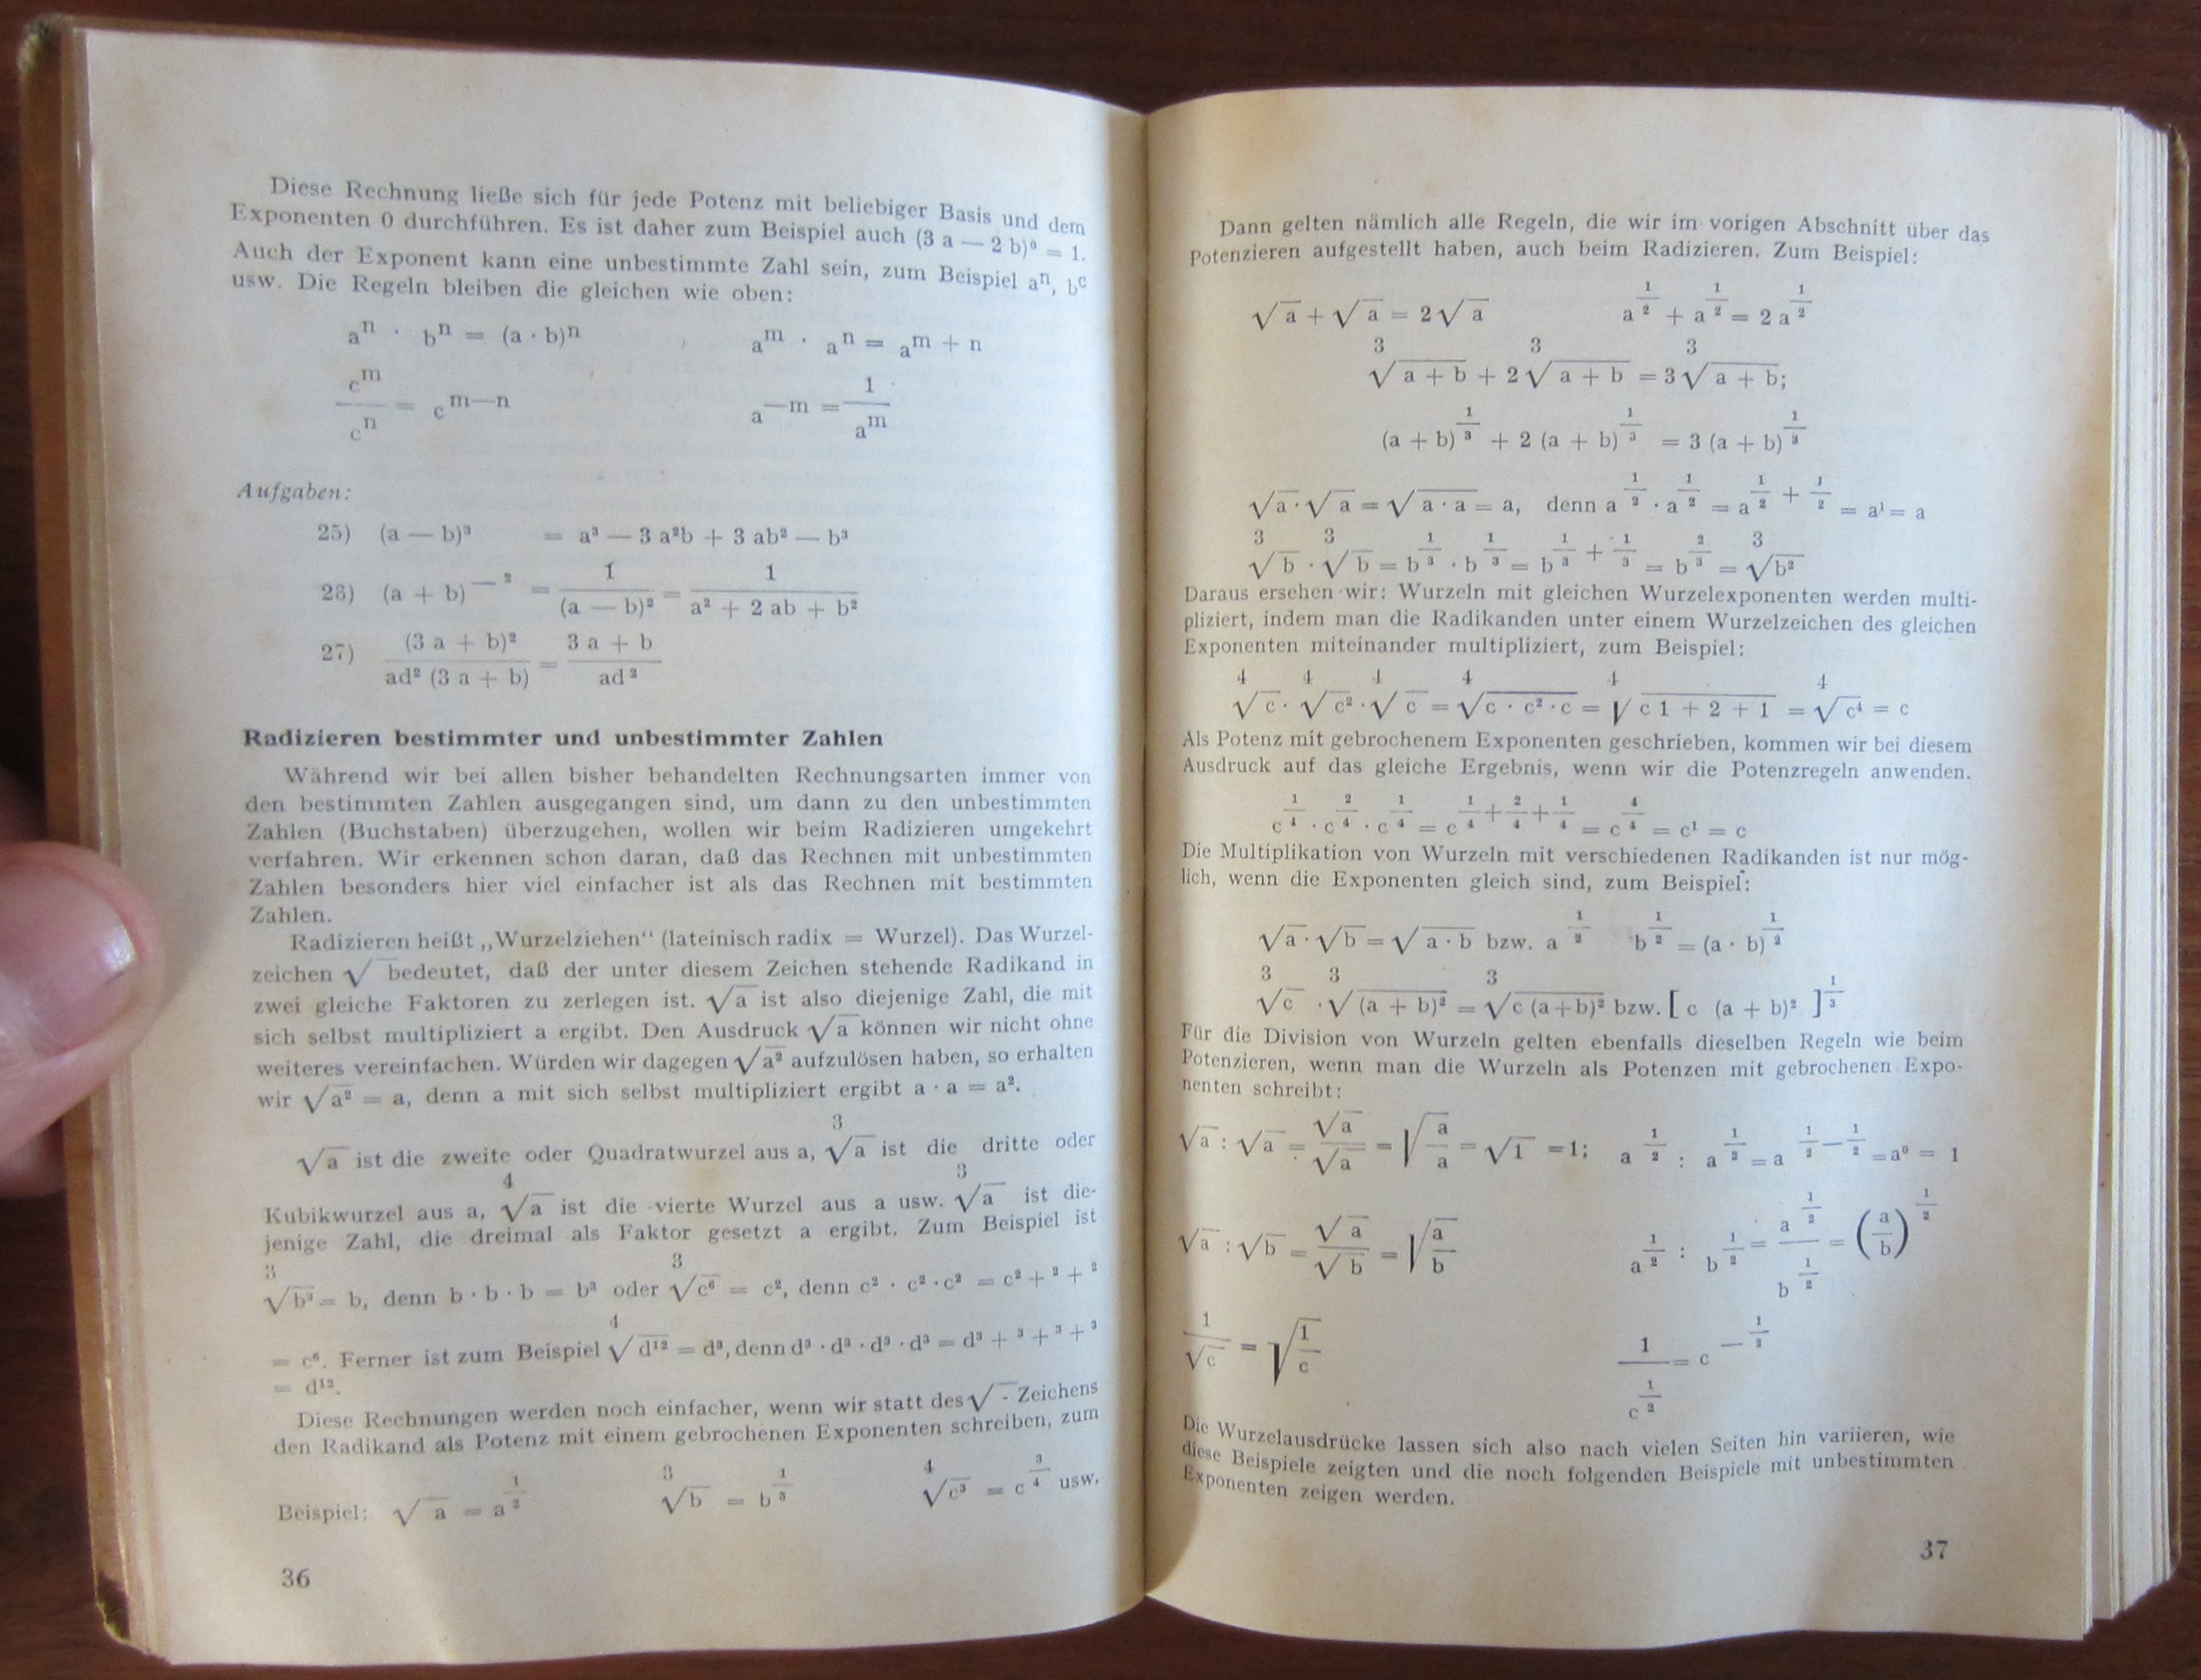 Diese Rechnung ließe sich für jede Potenz mit beliebiger Basis und dem
Exponenten 0 durchführen. Es ist daher zum Beispiel auch (3 a — 2 b)⁰ = 1.
Auch der Exponent kann eine unbestimmte Zahl sein, zum Beispiel aⁿ, bᶜ
usw. Die Regeln bleiben die gleichen wie oben:
aⁿ · bⁿ = (a · b)ⁿ aᵐ · aⁿ = aᵐ ⁺ ⁿ
cᵐ / cⁿ = c ᵐ—ⁿ a —ᵐ = 1 / aᵐ
Aufgaben:
25) (a — b)³ = a³ — 3 a²b + 3 ab² — b³
26) (a + b) — ² = 1 / (a — b)² = 1 / a² + 2 ab + b²
27) (3 a + b)² / ad² (3 a + b) = 3 a + b / ad²
Radizieren bestimmter und unbestimmter Zahlen
Während wir bei allen bisher behandelten Rechnungsarten immer von
den bestimmten Zahlen ausgegangen sind, um dann zu den unbestimmten
Zahlen (Buchstaben) überzugehen, wollen wir beim Radizieren umgekehrt
verfahren. Wir erkennen schon daran, daß das Rechnen mit unbestimmten
Zahlen besonders hier viel einfacher ist als das Rechnen mit bestimmten
Zahlen.
Radizieren heißt „Wurzelziehen“ (lateinisch radix = Wurzel). Das Wurzel-
zeichen √ bedeutet, daß der unter diesem Zeichen stehende Radikand in
zwei gleiche Faktoren zu zerlegen ist. √a ist also diejenige Zahl, die mit
sich selbst multipliziert a ergibt. Den Ausdruck √a können wir nicht ohne
weiteres vereinfachen. Würden wir dagegen √a² aufzulösen haben, so erhalten
wir √a² = a, denn a mit sich selbst multipliziert ergibt a · a = a².
√a ist die zweite oder Quadratwurzel aus a, ³√a ist die dritte oder
Kubikwurzel aus a, ⁴√a ist die vierte Wurzel aus a usw. ³√a ist die-
jenige Zahl, die dreimal als Faktor gesetzt a ergibt. Zum Beispiel ist
³√b³ = b, denn b · b · b = b³ oder ³√c⁶ = c², denn c² · c² · c² = c² ⁺ ² ⁺ ²
= c⁶. Ferner ist zum Beispiel ⁴√d¹² = d³, denn d³ · d³ · d³ · d³ = d³ ⁺ ³ ⁺ ³ ⁺ ³
= d¹².
Diese Rechnungen werden noch einfacher, wenn wir statt des √ - Zeichens
den Radikand als Potenz mit einem gebrochenen Exponenten schreiben, zum
Beispiel: √a = a^1/2 ³√b = b^1/3 ⁴√c³ = c^3/4 usw.
36
Dann gelten nämlich alle Regeln, die wir im vorigen Abschnitt über das
Potenzieren aufgestellt haben, auch beim Radizieren. Zum Beispiel:
√a + √a = 2√a a^1/2 + a^1/2 = 2 a^1/2
³√a + b + 2 ³√a + b = 3 ³√a + b;
(a + b)^1/3 + 2 (a + b)^1/3 = 3 (a + b)^1/3
√a · √a = √a · a = a, denn a^1/2 · a^1/2 = a^1/2 + 1/2 = a¹ = a
³√b · ³√b = b^1/3 · b^1/3 = b^1/3 + 1/3 = b^2/3 = ³√b²
Daraus ersehen wir: Wurzeln mit gleichen Wurzelexponenten werden multi-
pliziert, indem man die Radikanden unter einem Wurzelzeichen des gleichen
Exponenten miteinander multipliziert, zum Beispiel:
⁴√c · ⁴√c² · ⁴√c = ⁴√c · c² · c = ⁴√c 1 + 2 + 1 = ⁴√c⁴ = c
Als Potenz mit gebrochenem Exponenten geschrieben, kommen wir bei diesem
Ausdruck auf das gleiche Ergebnis, wenn wir die Potenzregeln anwenden.
c^1/4 · c^2/4 · c^1/4 = c^1/4 + 2/4 + 1/4 = c^4/4 = c¹ = c
Die Multiplikation von Wurzeln mit verschiedenen Radikanden ist nur mög-
lich, wenn die Exponenten gleich sind, zum Beispiel:
√a · √b = √a · b bzw. a^1/2 b^1/2 = (a · b)^1/2
³√c · ³√(a + b)² = ³√c (a+b)² bzw. [ c (a + b)² ]^1/3
Für die Division von Wurzeln gelten ebenfalls dieselben Regeln wie beim
Potenzieren, wenn man die Wurzeln als Potenzen mit gebrochenen Expo-
nenten schreibt:
√a : √a = √a / √a = √a/a = √1 = 1; a^1/2 : a^1/2 = a^1/2 — 1/2 = a⁰ = 1
√a : √b = √a / √b = √a/b a^1/2 : b^1/2 = a^1/2 / b^1/2 = (a/b)^1/2
1 / √c = √1/c 1 / c^1/2 = c^— 1/2
Die Wurzelausdrücke lassen sich also nach vielen Seiten hin variieren, wie
diese Beispiele zeigten und die noch folgenden Beispiele mit unbestimmten
Exponenten zeigen werden.
37